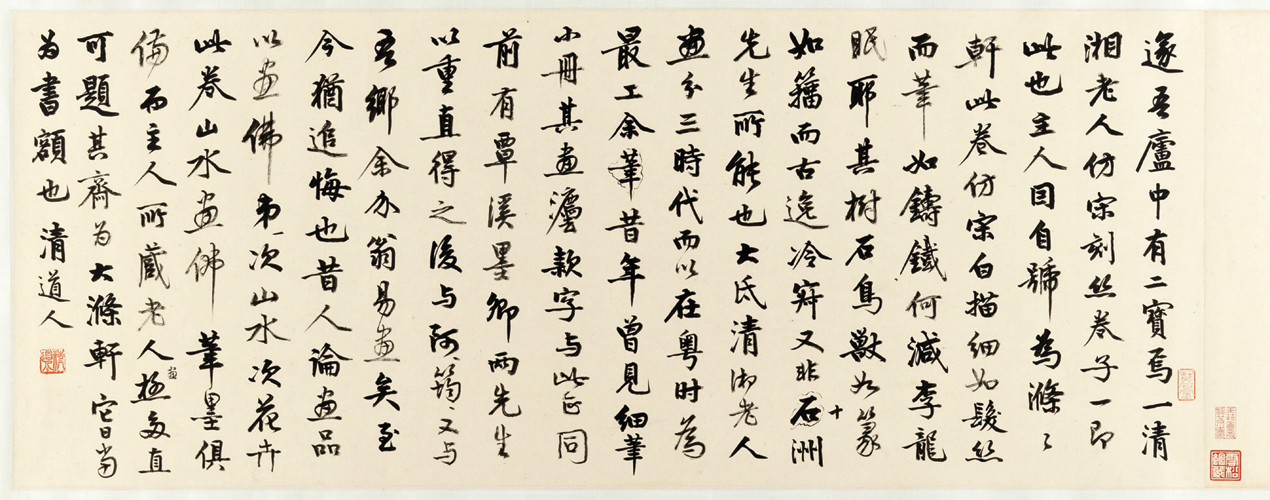 遂吾廬中有二寶焉一清
湘老人仿宋刻丝卷子一即
此也主人因自號為滌〻
軒此卷仿宋白描細如髮丝
而筆如鑄鐵何減李龍
眠耶其樹石鳥獸如篆
如籀而古逸冷又非石十洲
先生所能也大氐清湘老人
畫分三時代而以在粵时為
最工余筆昔年曾見細筆
小冊其畫灋款字与此正同
前有覃溪墨卿兩先生
以重直得之後与阿筠〻又与
吾鄉余亦翁易畫矣至
今猶追悔也昔人論畫品
以畫佛弟一次山水次花卉
此卷山水畫佛筆墨俱
備而主人所藏老人畫極多直
可題其齊为大滌軒它日當
为書額也清道人